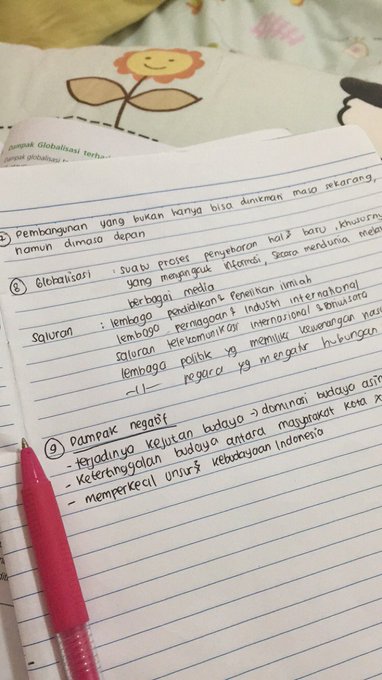 Dampak Globalisasi terha
Dampak globalisasi
7 Pembangunan yang bukan hanya bisa dinikmati masa sekarang,
namun dimasa depan
8 Globalisasi : suatu proses penyebaran hal² baru, khususny
yang menyangkut informasi, secara mendunia mela
berbagai media
Saluran : lembaga pendidikan & Penelitian ilmiah
lembaga perniagoan & Industri international
saluran telekomunikasi internasional &
lembaga politik yg memiliki kewenangan
-11- negara yg mengatur hubungan
9 Dampak negatif
- terjadinya kejutan budaya → dominasi budaya asin
- Ketertinggalan budaya antara masyarakat kota x
- memperkecil unsur² kebudayaan Indonesia